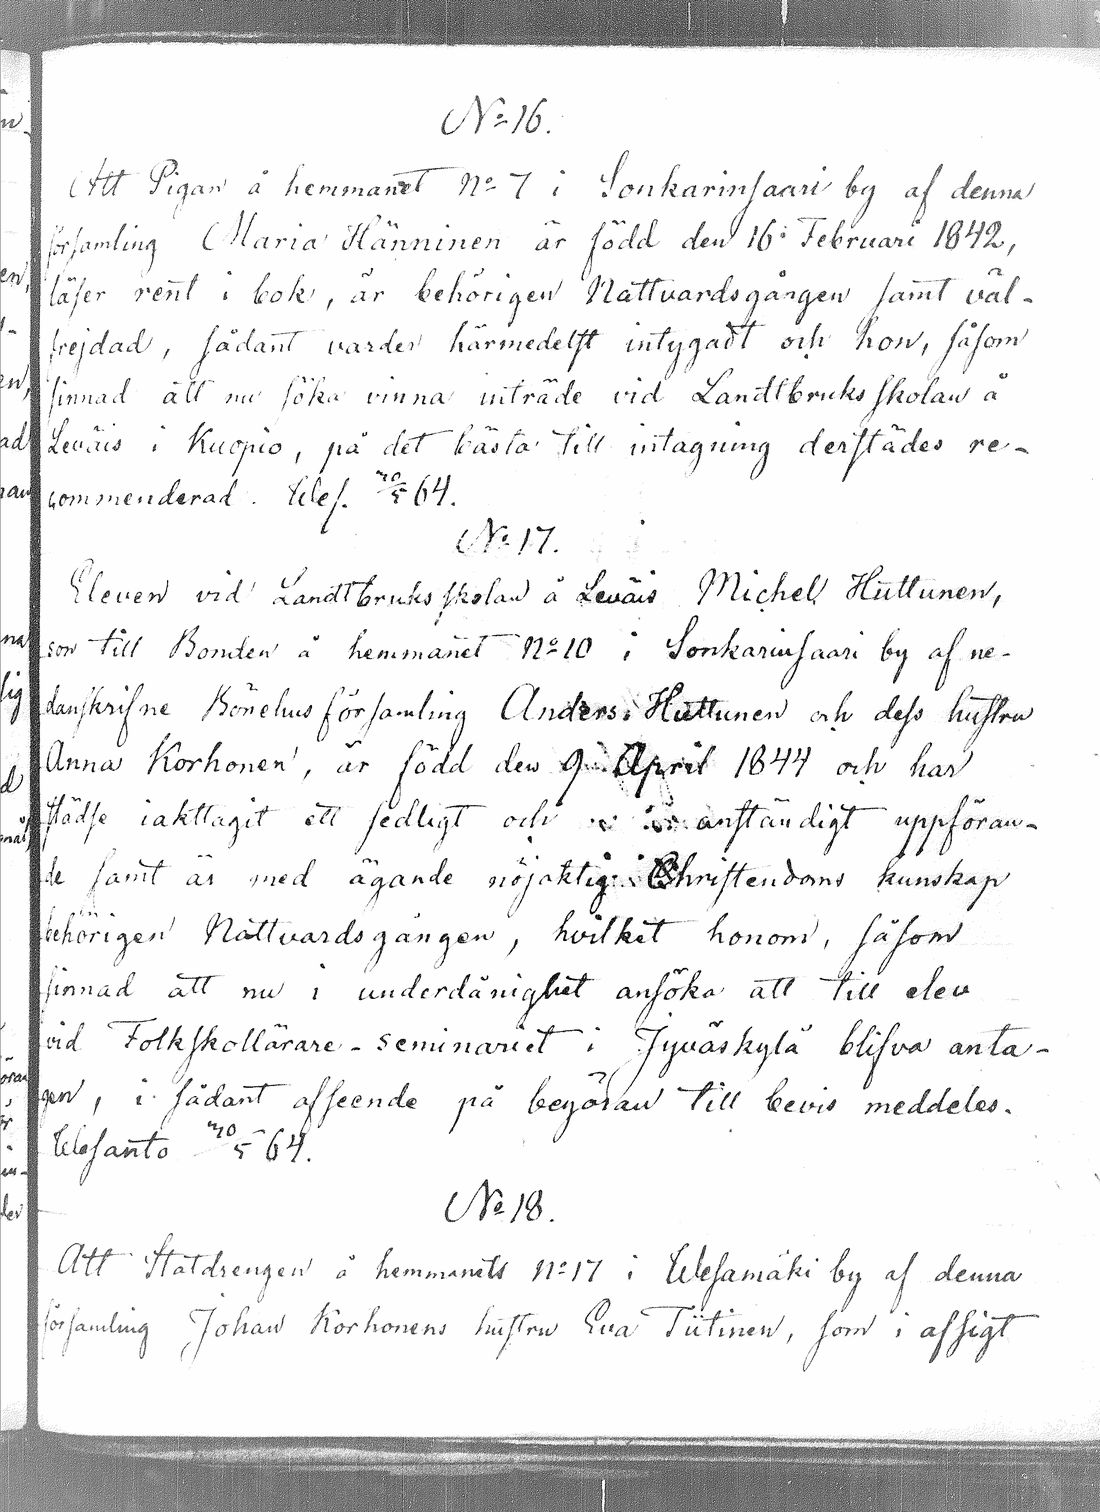 No 16.
Att Pigan å hemmanet No 7 i Sonkarinsaari by af denna
församling Maria Hänninen är född den 16 Februari 1842,
läser rent i bok, är behörigen Nattvardsgången samt väl-
frejdad, sådant varder härmedelst intygadt och hon, såsom
sinnad att nu söka vinna inträde vid Landtbruksskolan å
Leväis i Kuopio, på det bästa till intagning derstädes re-
commenderad. Wes. 20/5 64.
No 17.
Eleven vid Landtbruksskolan å Leväis Michel Huttunen,
son till Bonden å hemmanet No 10 i Sonkarinsaari by af ne-
danskrifne Bönehusförsamling Anders Huttunen och dess hustru
Anna Korhonen, är född den 9 April 1844 och har
städse iakttagit ett sedligt och anständigt uppföran-
de samt är med ägande nöjaktig Christendoms kunskap
behörigen Nattvardsgången, hvilket honom, såsom
sinnad att nu i underdånighet ansöka att till elev
vid Folkskollärare-seminariet i Jyväskylä blifva anta-
gen, i sådant afseende på begäran till bevis meddeles.
Wesanto 20/5 64.
No 18.
Att Statdrengen å hemmanets No 17 i Wesamäki by af denna
församling Johan Korhonens hustru Eva Tiitinen, som i afsigt